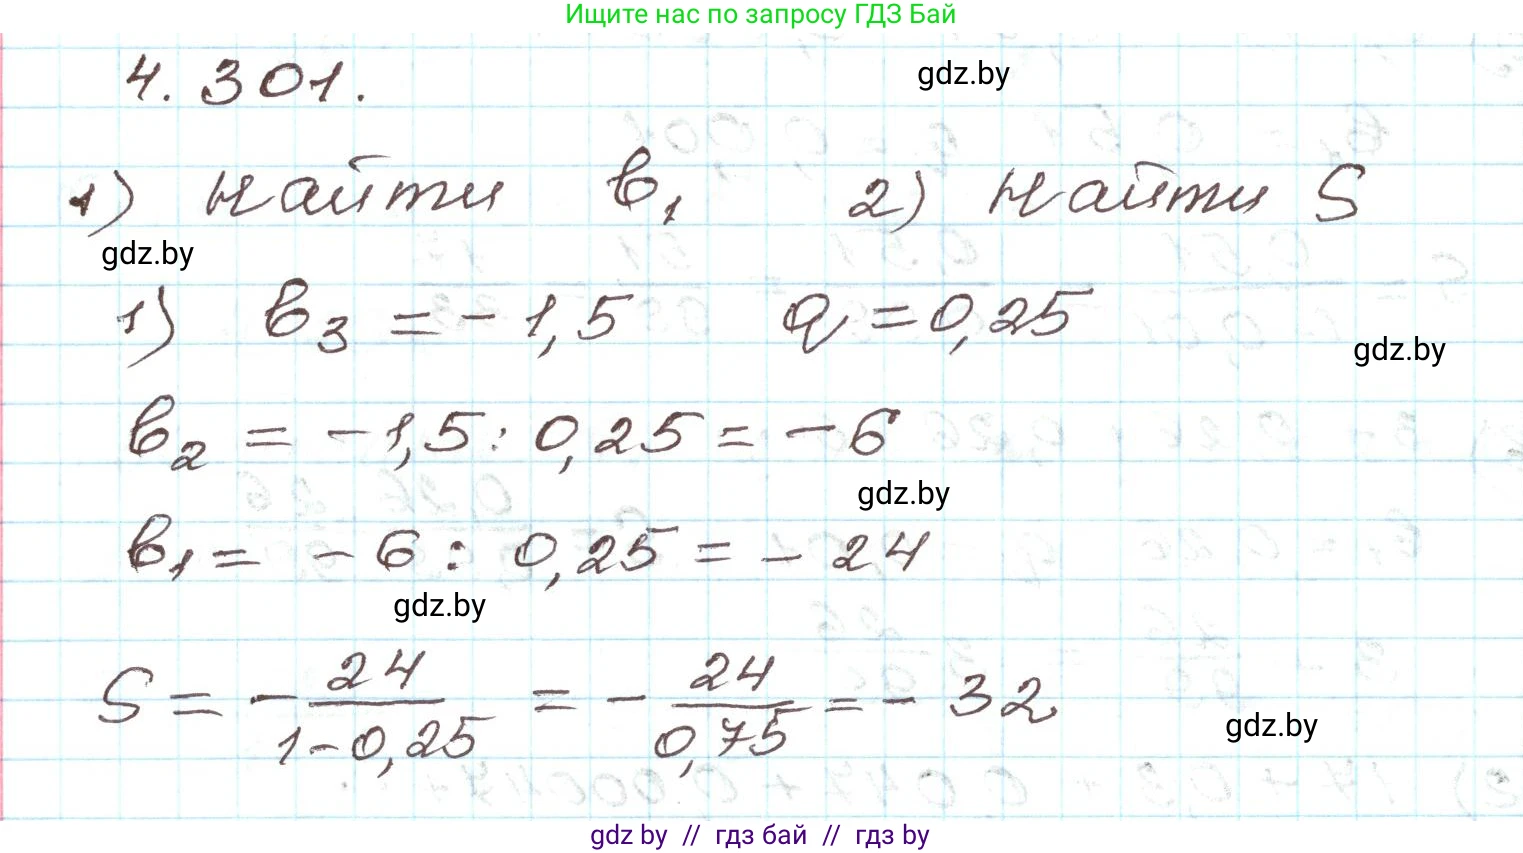 Ищите нас по запросу ГДЗ Бай
4.301.
gdz.by
1) найти b₁ 2) найти S
gdz.by
1) b₃ = -1,5 q = 0,25
gdz.by
b₂ = -1,5 : 0,25 = -6
gdz.by
b₁ = -6 : 0,25 = -24
gdz.by
S = -24/(1-0,25) = -24/0,75 = -32
gdz.by
gdz by // гдз бай // гдз by